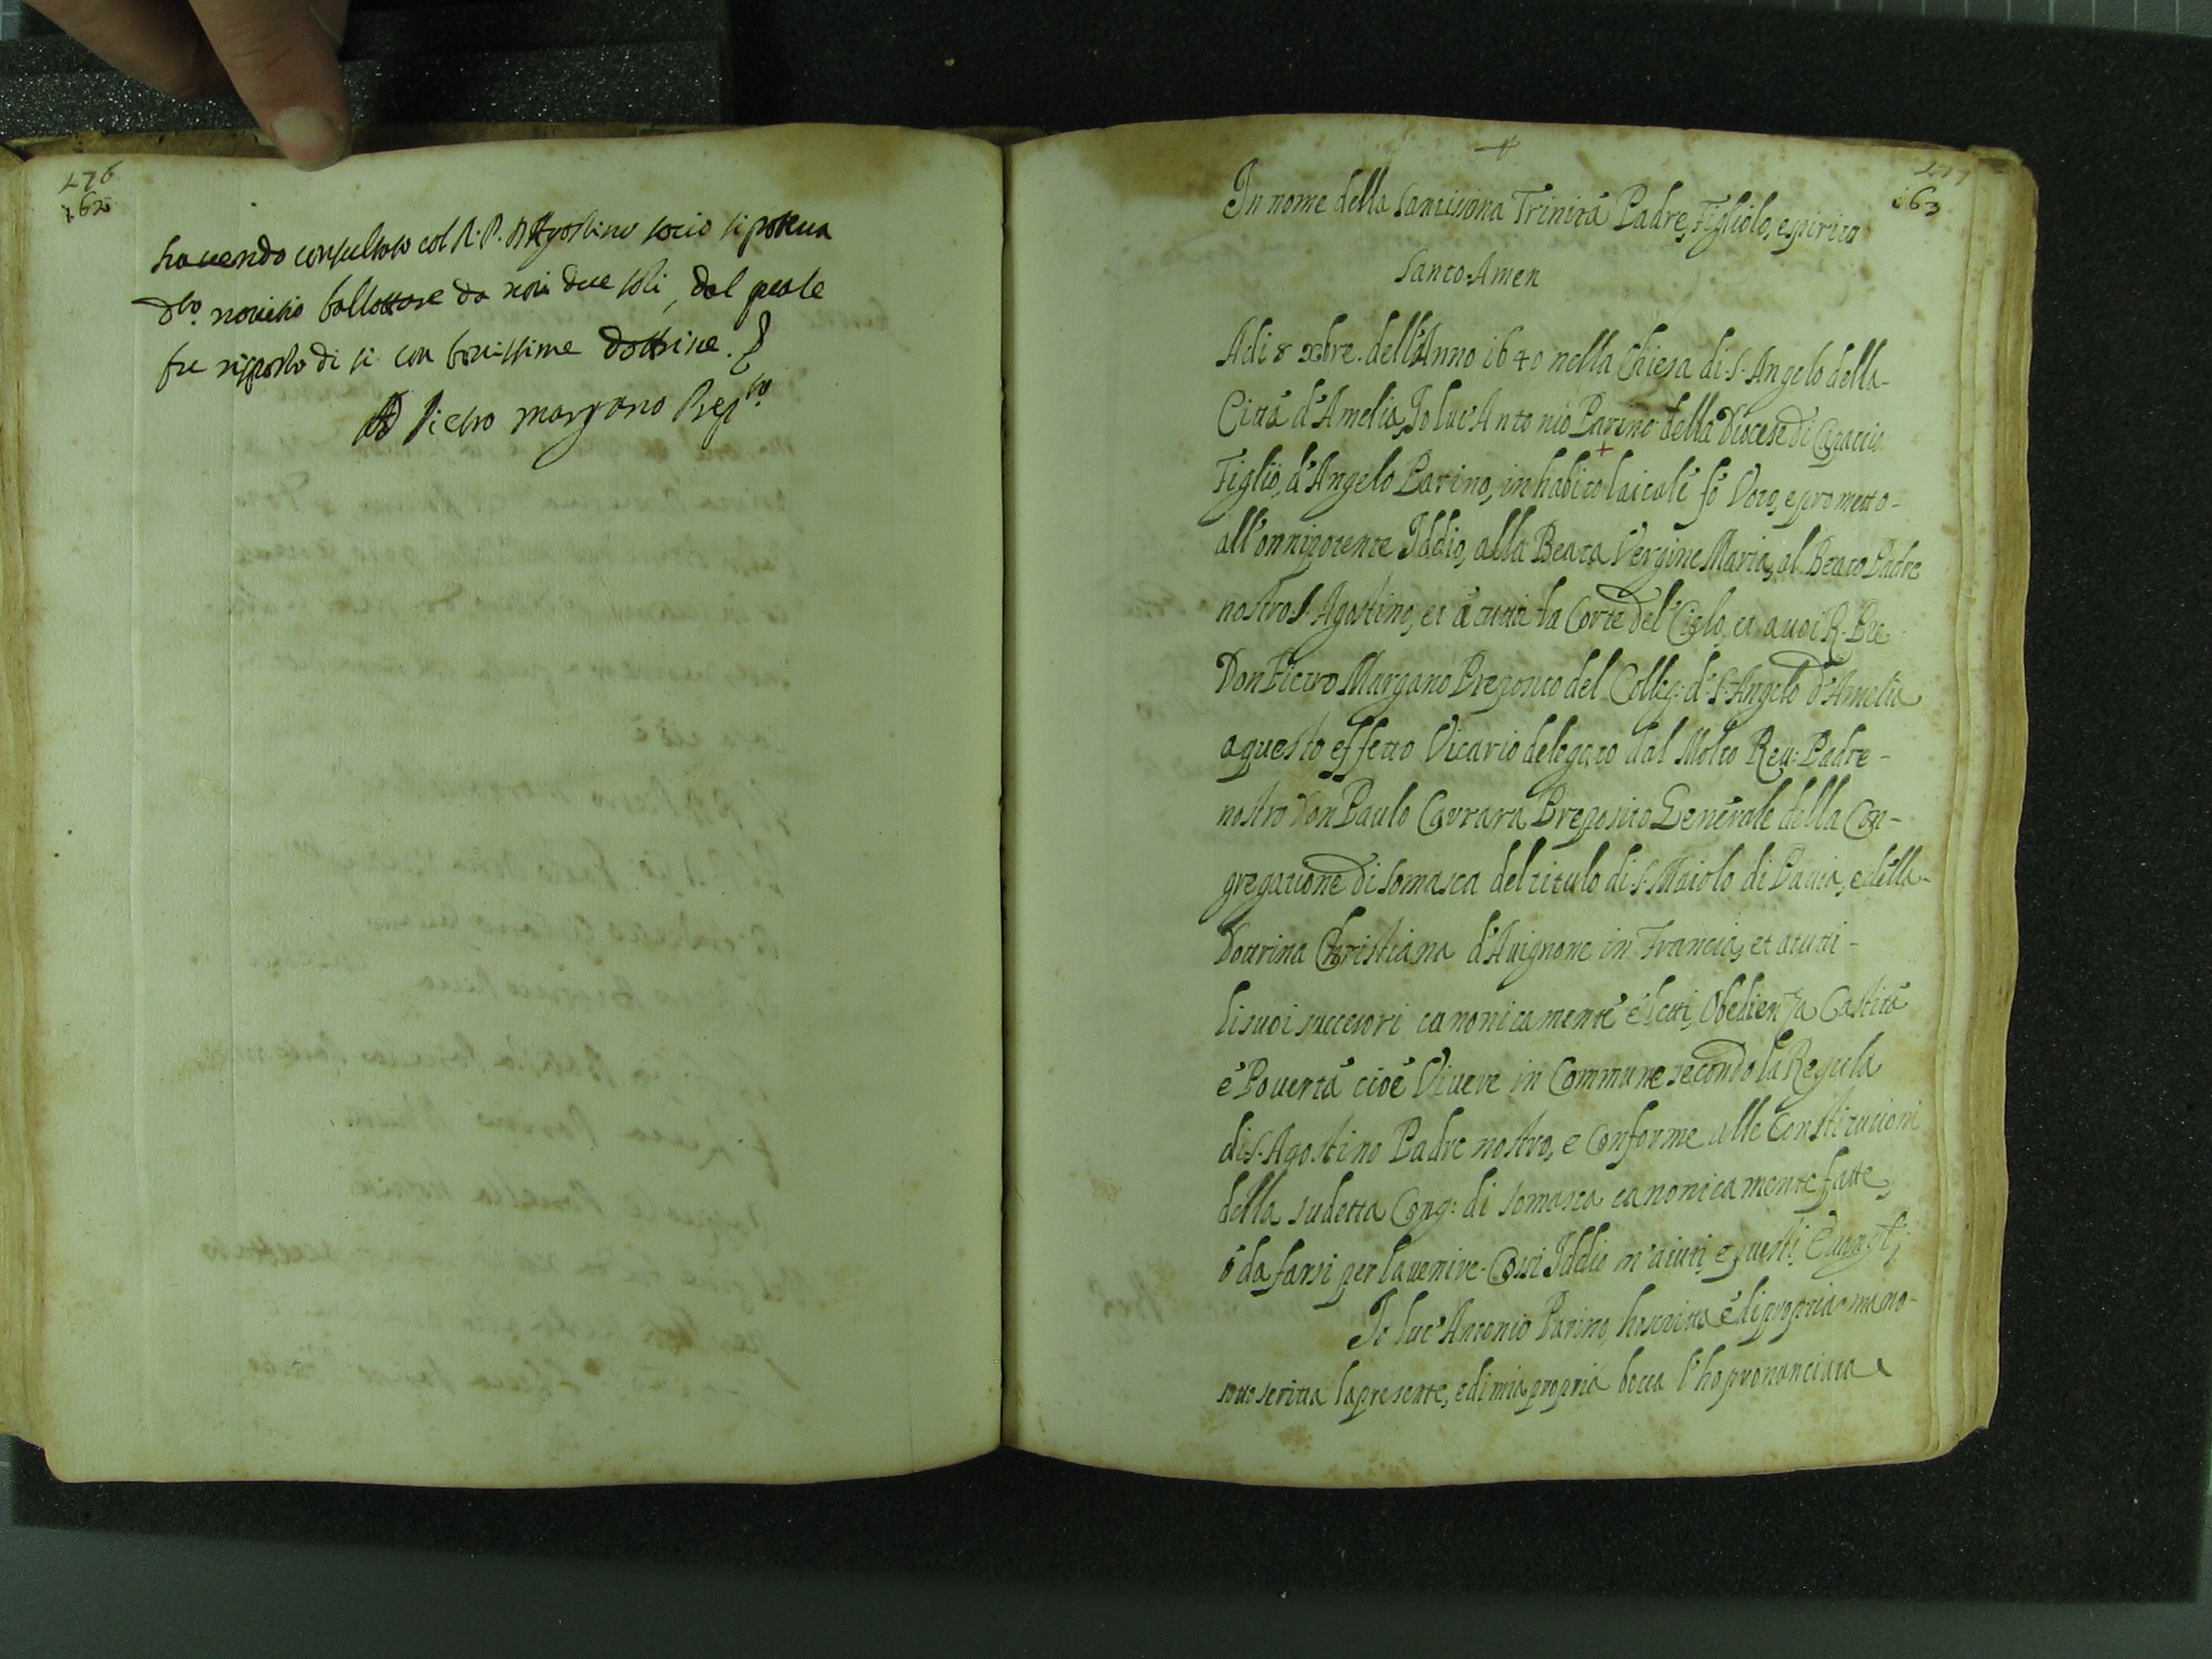 176
162
havendo consultato col R. P. D Agostino socio si poteva
dto. novitio ballottare da noi due soli, dal quale
fu risposto di si con bonissime dottrine.
D Pietro margano Prepto.
163
In nome della santissima Trinità Padre, Figliolo, e spirito
santo. Amen
Adi 8 xbre. dell'Anno 1640 nella Chiesa di. S. Angelo della-
Città d'Amelia, Io luc'Antonio Parino della Diocese di Capaccio
Figlio, d'Angelo Parino, in habito laicale fò Voto, e prometto-
all'onnipotente Iddio, alla Beata Vergine Maria, al Beato Padre
nostro S. Agostino, et à tutti la Corte del Cielo, et a voi R. Pre
Don Pietro Margano Preposito del Colleg: d. S. Angelo d'Amelia
a questo effetto Vicario delegato dal Molto Reu: Padre-
nostro Don Paulo Carrara Preposito Generale della Con-
gregatione di somasca del titulo di S. Maiolo di Pavia, e della-
Dottrina Christiana d'Avignone in Francia, et a tutti-
li suoi successori canonicamente eletti, Obedienza Castità
è Povertà cioè Vivere in Commune secondo la Regula
di S. Agostino Padre nostro, e conforme alle Constitutioni
della sudetta Cong: di somasca canonicamente fatte,
ò da farsi per l'avenire. Cossi Iddio m'aiuti, e questi Evangeli
Io luc'Antonio Parino, ho scritta è di propria mano-
sottoscritta la presente, e di mia propria bocca l'ho prononciata